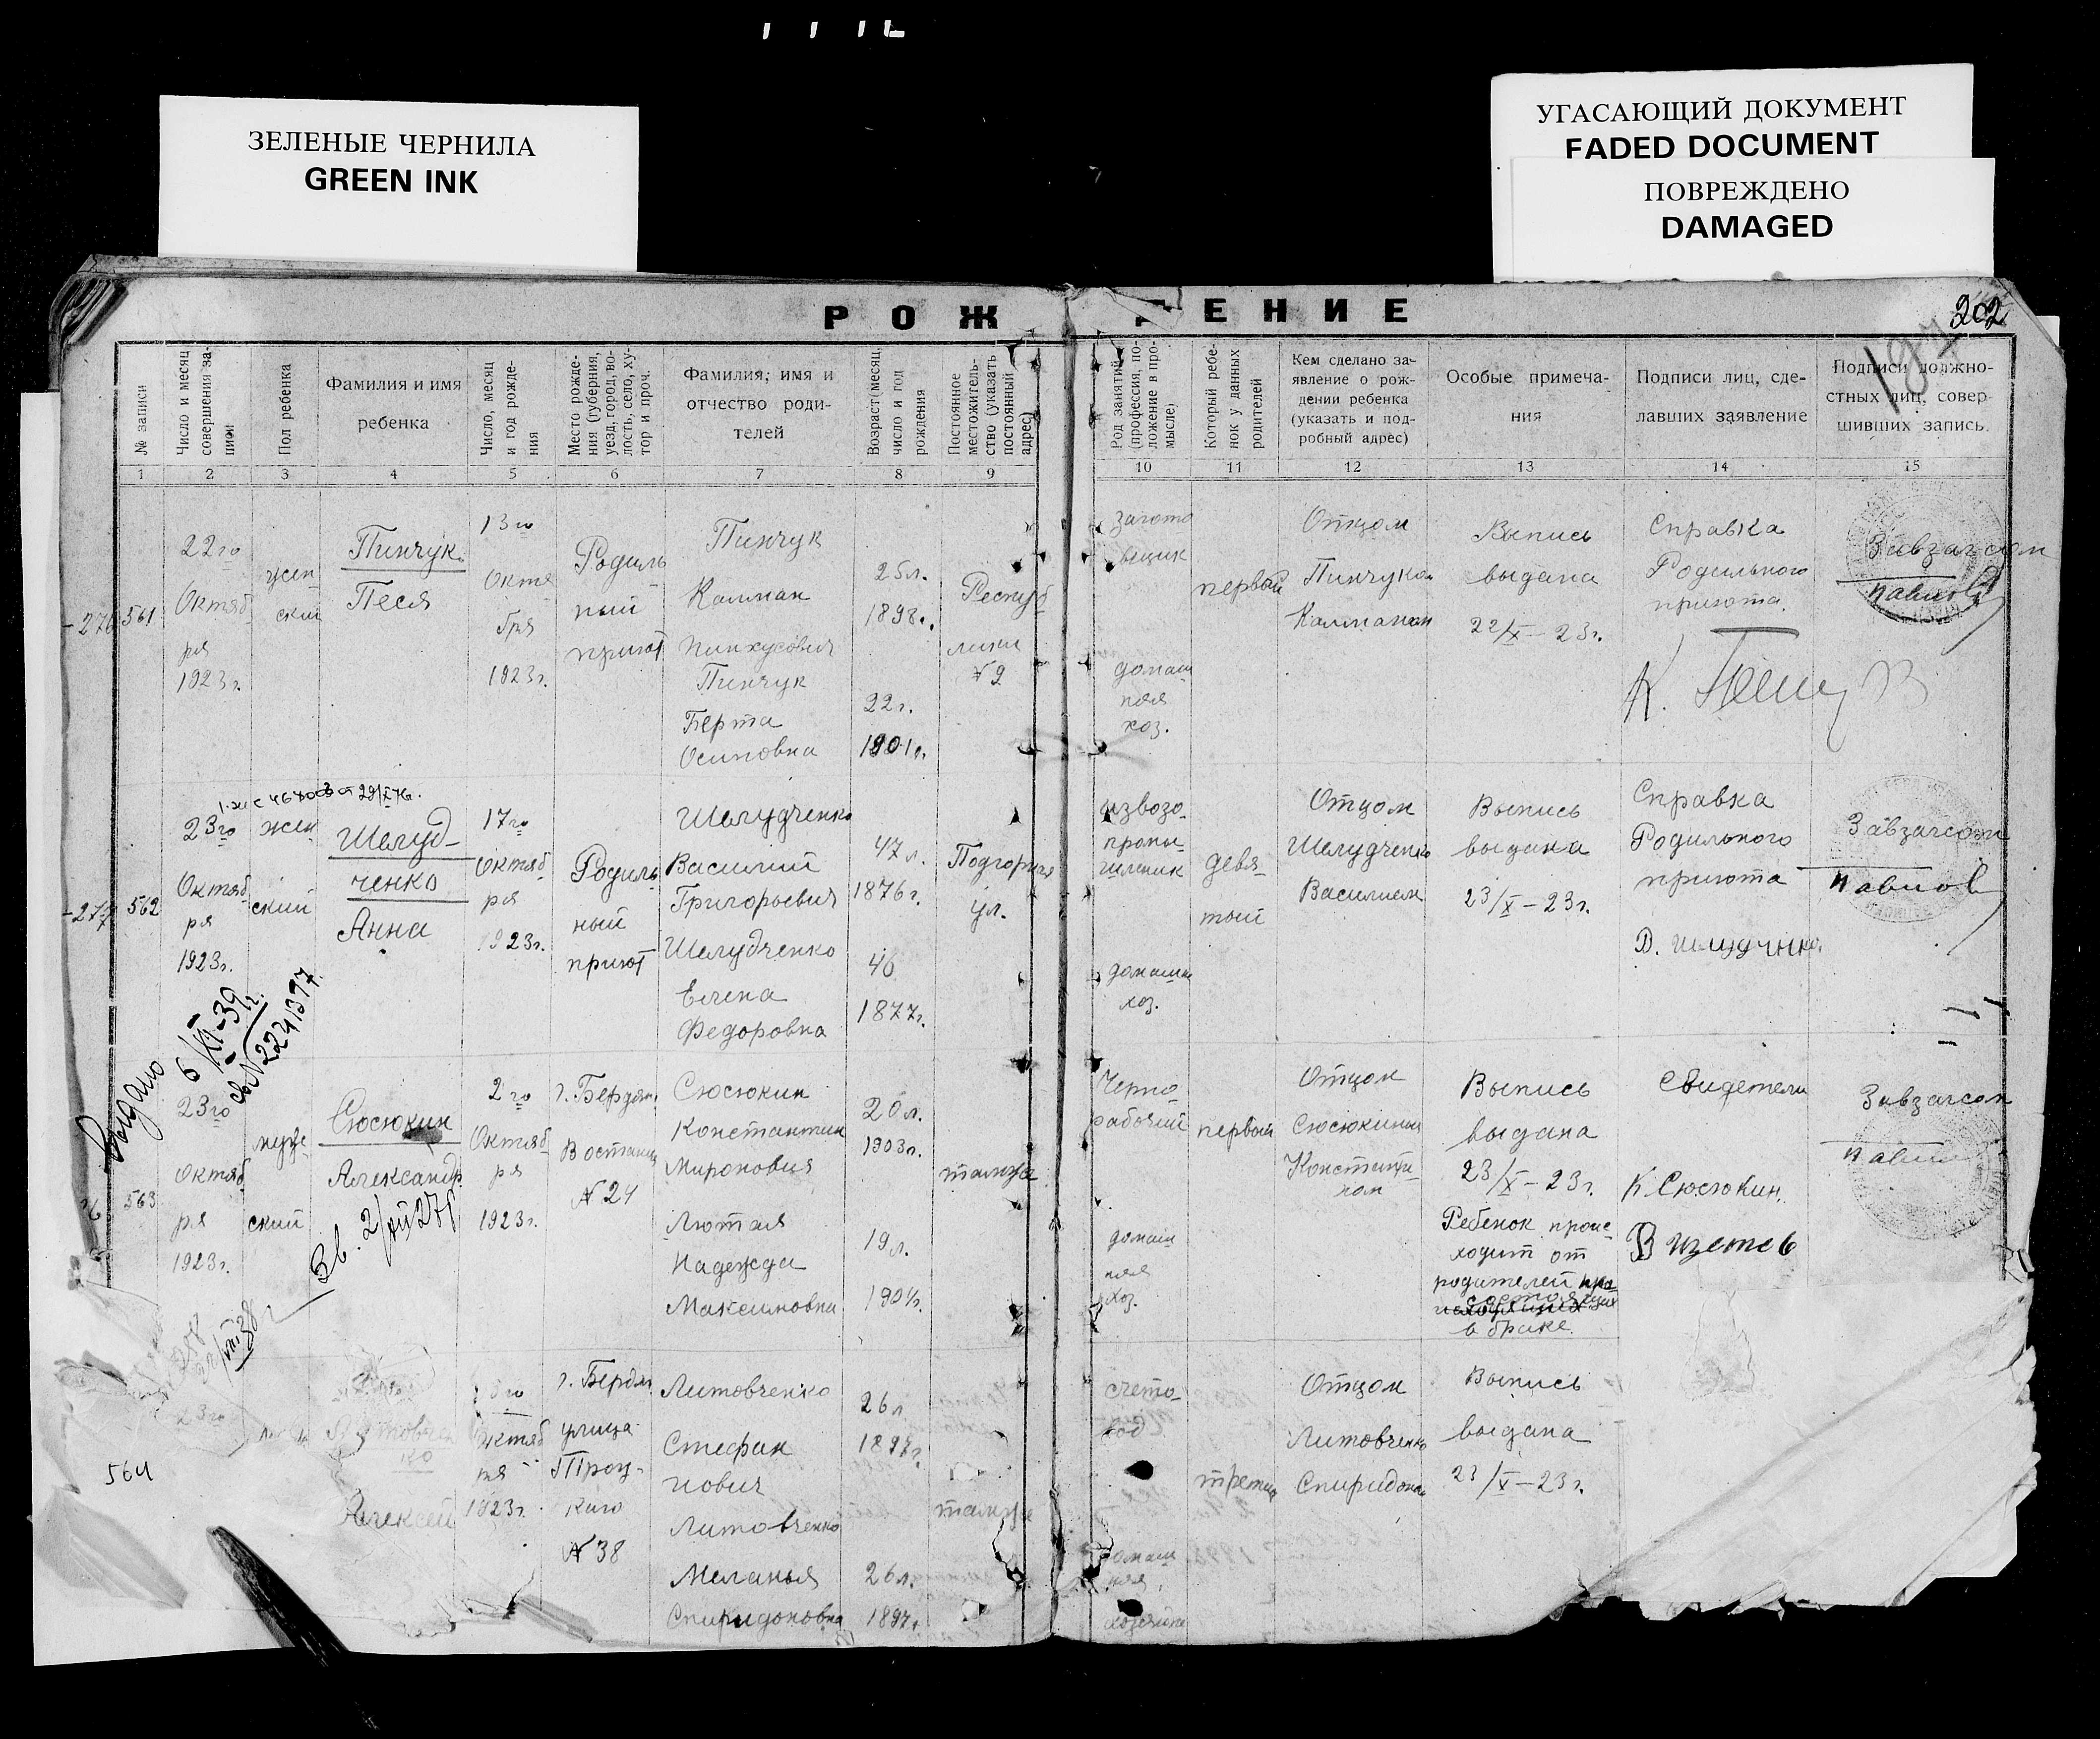 ЗЕЛЕНЫЕ ЧЕРНИЛА
GREEN INK
УГАСАЮЩИЙ ДОКУМЕНТ
FADED DOCUMENT
ПОВРЕЖДЕНО
DAMAGED
РОЖ ЕНИЕ
202
№ записи
Число и месяц
совершения за-
писи
Пол ребенка
Фамилия и имя
ребенка
Число, месяц
и год рожде-
ния
Место рожде-
ния (губерния,
уезд, город, во-
лость, село, ху-
тор и проч.
Фамилия, имя и
отчество роди-
телей
Возраст (месяц,
число и год
рождения
Постоянное
местожитель-
ство (указать
постоянный
адрес)
Род занятий
(профессия, по-
ложение в про-
мысле)
Который ребе-
нок у данных
родителей
Кем сделано за-
явление о рож-
дении ребенка
(указать и под-
робный адрес)
Особые примеча-
ния
Подписи лиц, сде-
лавших заявление
Подписи должно-
стных лиц, совер-
шивших запись.
1 2 3 4 5 6 7 8 9 10 11 12 13 14 15
276
561
22го
Октяб
ря
1923г.
жен
ский
Пинчук
Песя
13го
Октя
бря
1923г.
Родиль
ный
приют
Пинчук
Калман
Пинхусович
Пинчук
Берта
Осиповна
25л.
1898г.
22г.
1901г.
Респуб
лики
№9
загото
вщик
домаш
няя
хоз.
первый
Отцом
Пинчуком
Калманом
Выпись
выдана
22/X-23г.
Справка
Родильного
приюта.
Завзагсом
Павлов
277
562
23го
Октяб
ря
1923г.
жен
ский
Шелуд-
ченко
Анна
17го
Октяб
ря
1923г.
Родиль
ный
приют
Шелудченко
Василий
Григорьевич
Шелудченко
Елена
Федоровна
47л.
1876г.
46
1877г.
Подгорная
ул.
извозо-
промы-
шленник
домашн
хоз.
девя-
тый
Отцом
Шелудченко
Василием
Выпись
выдана
23/X-23г.
Справка
Родильного
приюта
Завзагсом
Павлов
Выдано
6/XI-39г.
св№2241397
563
23го
Октяб
ря
1923г.
муж
ский
Сюсюкин
Александр
2го
Октяб
ря
1923г.
г. Бердян.
Востания
№24
Сюсюкин
Константин
Миронович
Лютая
Надежда
Максимовна
20л.
1903г.
19л.
1904г.
там же
Черно
рабочий
домаш
няя
хоз.
первый
Отцом
Сюсюкиным
Константи-
ном
Выпись
выдана
23/X-23г.
Ребенок проис-
ходит от
родителей
состоящих
в браке.
Свидетели
К. Сюсюкин.
Завзагсом
Павлов
564
23го
Литовчен
ко
Алексей
Октяб
ря
1923г.
г. Бердян
улица
Троц-
кого
№38
Литовченко
Стефан
нович
Литовченко
Меланья
Спиридоновна
26л.
1897г.
26л.
1897г.
там же
счето-
вод
домаш
няя
хозяйка
третий
Отцом
Литовченко
Спиридоном
Выпись
выдана
23/X-23г.